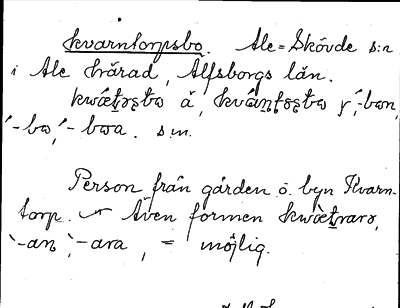 kvarntorpsbo. Ale=Skövde s:n
i Ale härad, Älfsborgs län.
å, -bon,
-bo, -boa. s.m.
Person från gården o. byn Kvarn-
torp. Även formen
-an, -ara, = möjlig.